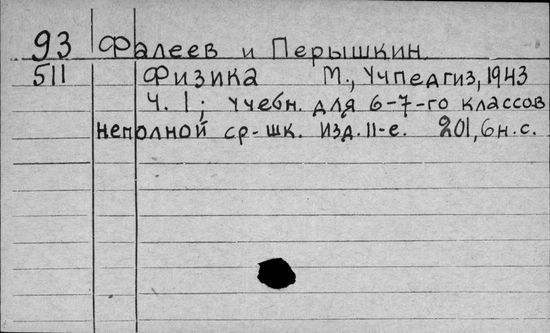 93 Фалеев и Перышкин.
511 Физика М., Учпедгиз, 1943
Ч. 1; учебн. для 6-7-го классов
неполной ср-шк. Изд. 11-е. 201,6 н.с.